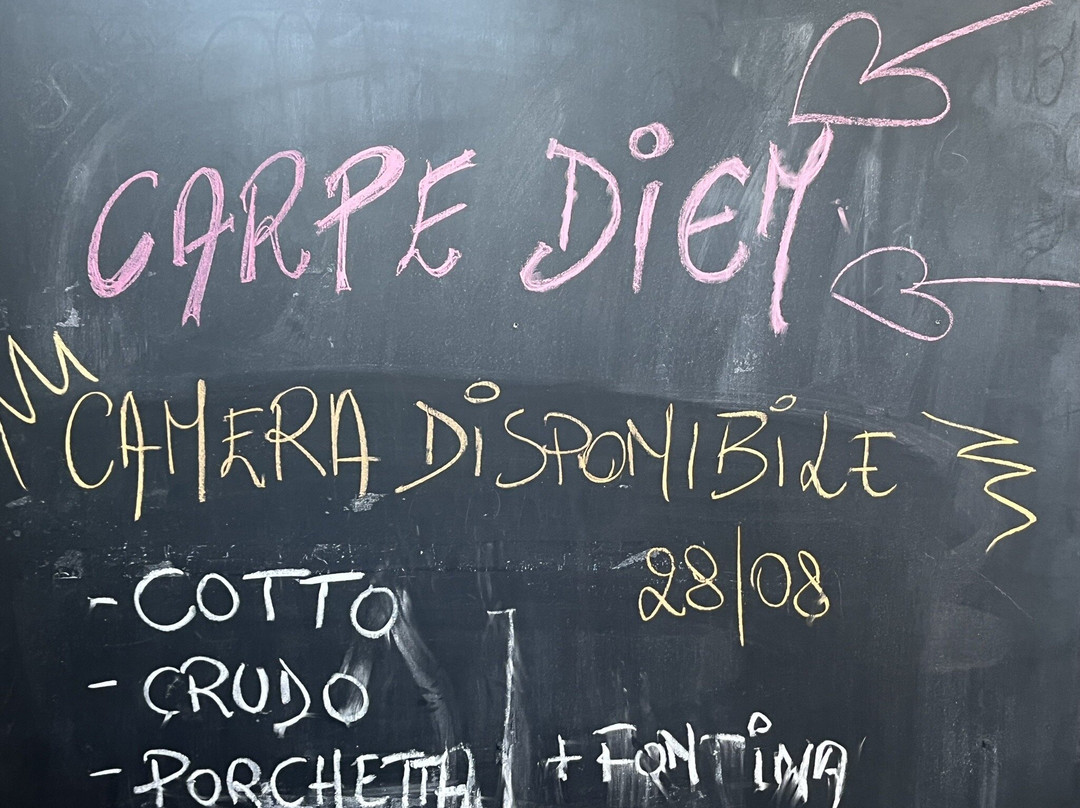 CARPE DIEM
CAMERA DISPONIBILE
28/08
- COTTO
- CRUDO
- PORCHETTA + FONTINA